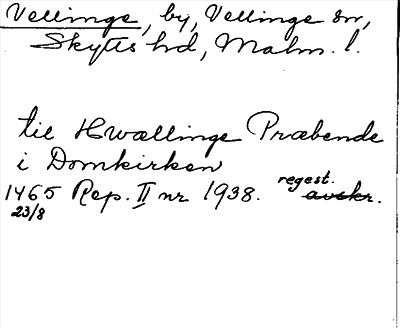 Vellinge, by, Vellinge sn,
Skytts hd, Malm. l.
til Hwællinge Præbende
i Domkirken
1465 Rep. II nr 1938. regest. avskr.
23/8